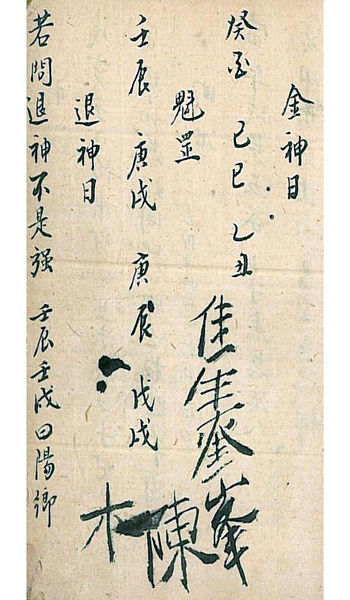 金神日
癸酉 己巳 乙丑
魁罡
壬辰 庚戌 庚辰 戊戌
退神日
若問退神不是強 壬辰壬戌曰陽卿
佳生 峯
陳
木